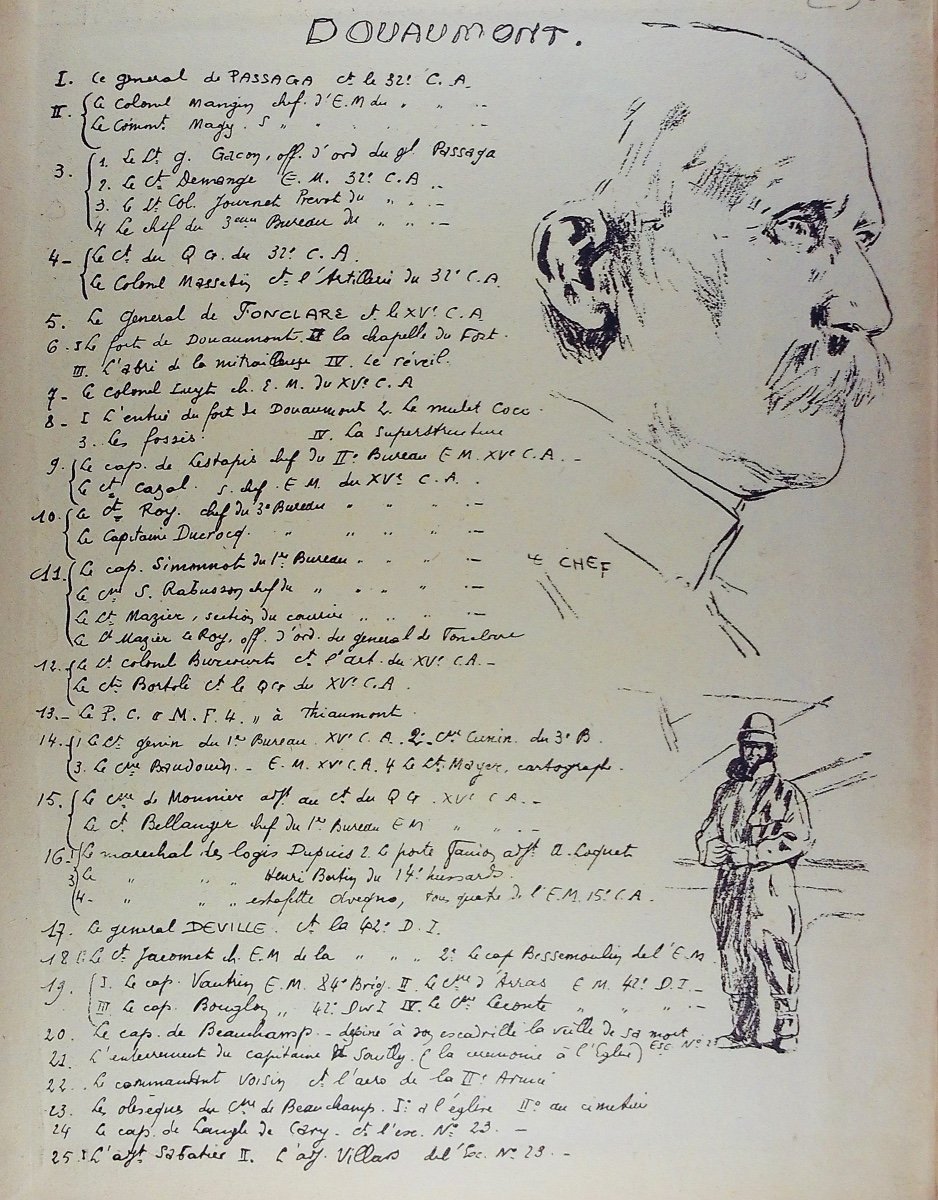 DOUAUMONT.
I. Le general de PASSAGA ct le 32e C.A.
II. Le Colonel Mangin chef. d'E.M du " " -
Le Comont. Magy. S " " " -
3. 1. Le Lt g. Gacon, off. d'ord du gl Passaga
2. Le Ct Demange E.M. 32e C.A
3. Le Lt Col. Journet Prevot du " " -
4 Le chef du 3eme Bureau du " " -
4- Le Ct du Q G. du 32e C.A.
Le Colonel Massetin ct l'Artillerie du 32e C.A
5. Le general de FONCLARE ct le XVe C.A
6. I Le fort de Douaumont. II la chapelle du Fort.
III. L'abri de la mitrailleuse IV. Le réveil.
7- Le colonel Luyt ch. E.M. du XVe C.A
8- I L'entrée du fort de Douaumont 2. Le mulet Coco.
3. Les fossés. IV. La Superstructure
9. Le cap. de Lestapis chef du IIe Bureau E M. XVe C.A. -
Le ct Cazal. s. chef. E M. du XVe C.A. .
10. Le ct Roy. chef du 3e Bureau " " " -
Le Capitaine Ducrocq. " " " " -
11. Le cap. Simonnot du 1er Bureau " " " -
Le cne S. Rabusson chef du " " " " -
Le Lt Mazier, section du courrier " " " -
Le Lt Mazier Le Roy, off. d'ord. du general de Fonclare
12. Le Lt colonel Burcourt ct l'art. du XVe C.A. -
Le ctn Bortoli ct le QG du XVe C.A.
13.- Le P.C. " M.F.4. " à Thiaumont
14. 1 Le Lt genin du 1er Bureau. XVe C.A. 2- Cne Cunin. du 3e B.
3. Le Cne Baudouin. - E.M. XVe C.A. 4 Le Lt Mayer, cartographe.
15. Le cne de Mounier adjt au Ct du Q G. XVe C A. -
Le Ct Bellanger chef du 1er Bureau EM " " -
16. 1 Le marechal des logis Dupuis 2. Le porte fanion adjt A. Loquet
3 Le " " " Henri Bertin du 14e hussards.
4- " " " estafette Olvegno, tous quatre de l'E.M. 15e C.A.
17. Le general DEVILLE. ct la 42e D.I.
18 1. Le Ct Jacomet ch. E.M de la " " " 2e Le cap Bessemoulin de l'E.M
19. I. Le cap. Vautrin E.M. 84e Brig. II. Le Cne d'Arras E M. 42e D.I -
III Le cap. Bouglon " 42e Div I IV. Le Cne Leconte " " " -
20. Le cap. de Beauchamp - dessiné à son escadrille la veille de sa mort
21. L'enterrement du capitaine (la ceremonie à l'Eglise) ESC. No 23
22.. Le commandant Voisin ct l'aero de la IIe Armée
23. Les obsèques du Cne de Beauchamp. Io à l'église IIo au cimetière
24 Le cap. de Langle de Cary. ct l'esc. No 23. -
25. I L'adjt Sabatier II. L'adj. Villars de l'Esc. No 23. -
Le CHEF